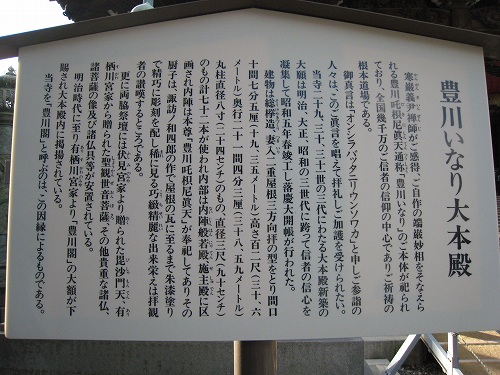 豊川いなり大本殿
寒巌義尹禅師がご感得、ご自作の端厳妙相をそなえら
れる豊川吒枳尼眞天通称「豊川いなり」のご本体が祀られ
ており、全国幾千万のご信者の信仰の中心でありご祈祷の
根本道場である。
御真言は「オンシラバッタニリウンソワカ」と申しご参詣の
人々は、このご眞言を唱えて拝礼しご加護を受けられたい。
当寺二十九、三十、三十一世の三代にわたる大本殿新築の
大願は明治、大正、昭和の三世代に跨って信者の信心を
凝集して昭和五年春竣工し落慶大開帳が行われた。
建物は総欅造、妻入二重屋根三方向拝の型をとり間口
十間七分五厘（十九、三五メートル）高さ百二尺（三十、六
メートル）奥行二十一間四分三厘（三十八、五九メートル）
丸柱直径八寸（二十四センチ）のもの、直径三尺（九十センチ）
のもの計七十二本が使われ内部は内陣、般若殿、施主殿に区
画され内陣は本尊「豊川吒枳尼眞天」が奉祀してありその
厨子は、諏訪ノ和四郎の作で屋根の瓦に至るまで朱漆塗り
で精巧に彫刻を配し稀に見る巧緻精麗の出来栄えは拝観
者の讃嘆するところである。
更に両脇祭壇には伏見宮家より贈られた毘沙門天、有
栖川宮家から贈られた聖観世音菩薩、その他貴重な諸仏、
諸菩薩の像及び諸仏具等が安置されている。
明治時代に至り有栖川宮家より「豊川閣」の大額が下
賜され大本殿内に掲揚されている。
当寺を「豊川閣」と呼ぶのは、この因縁によるものである。